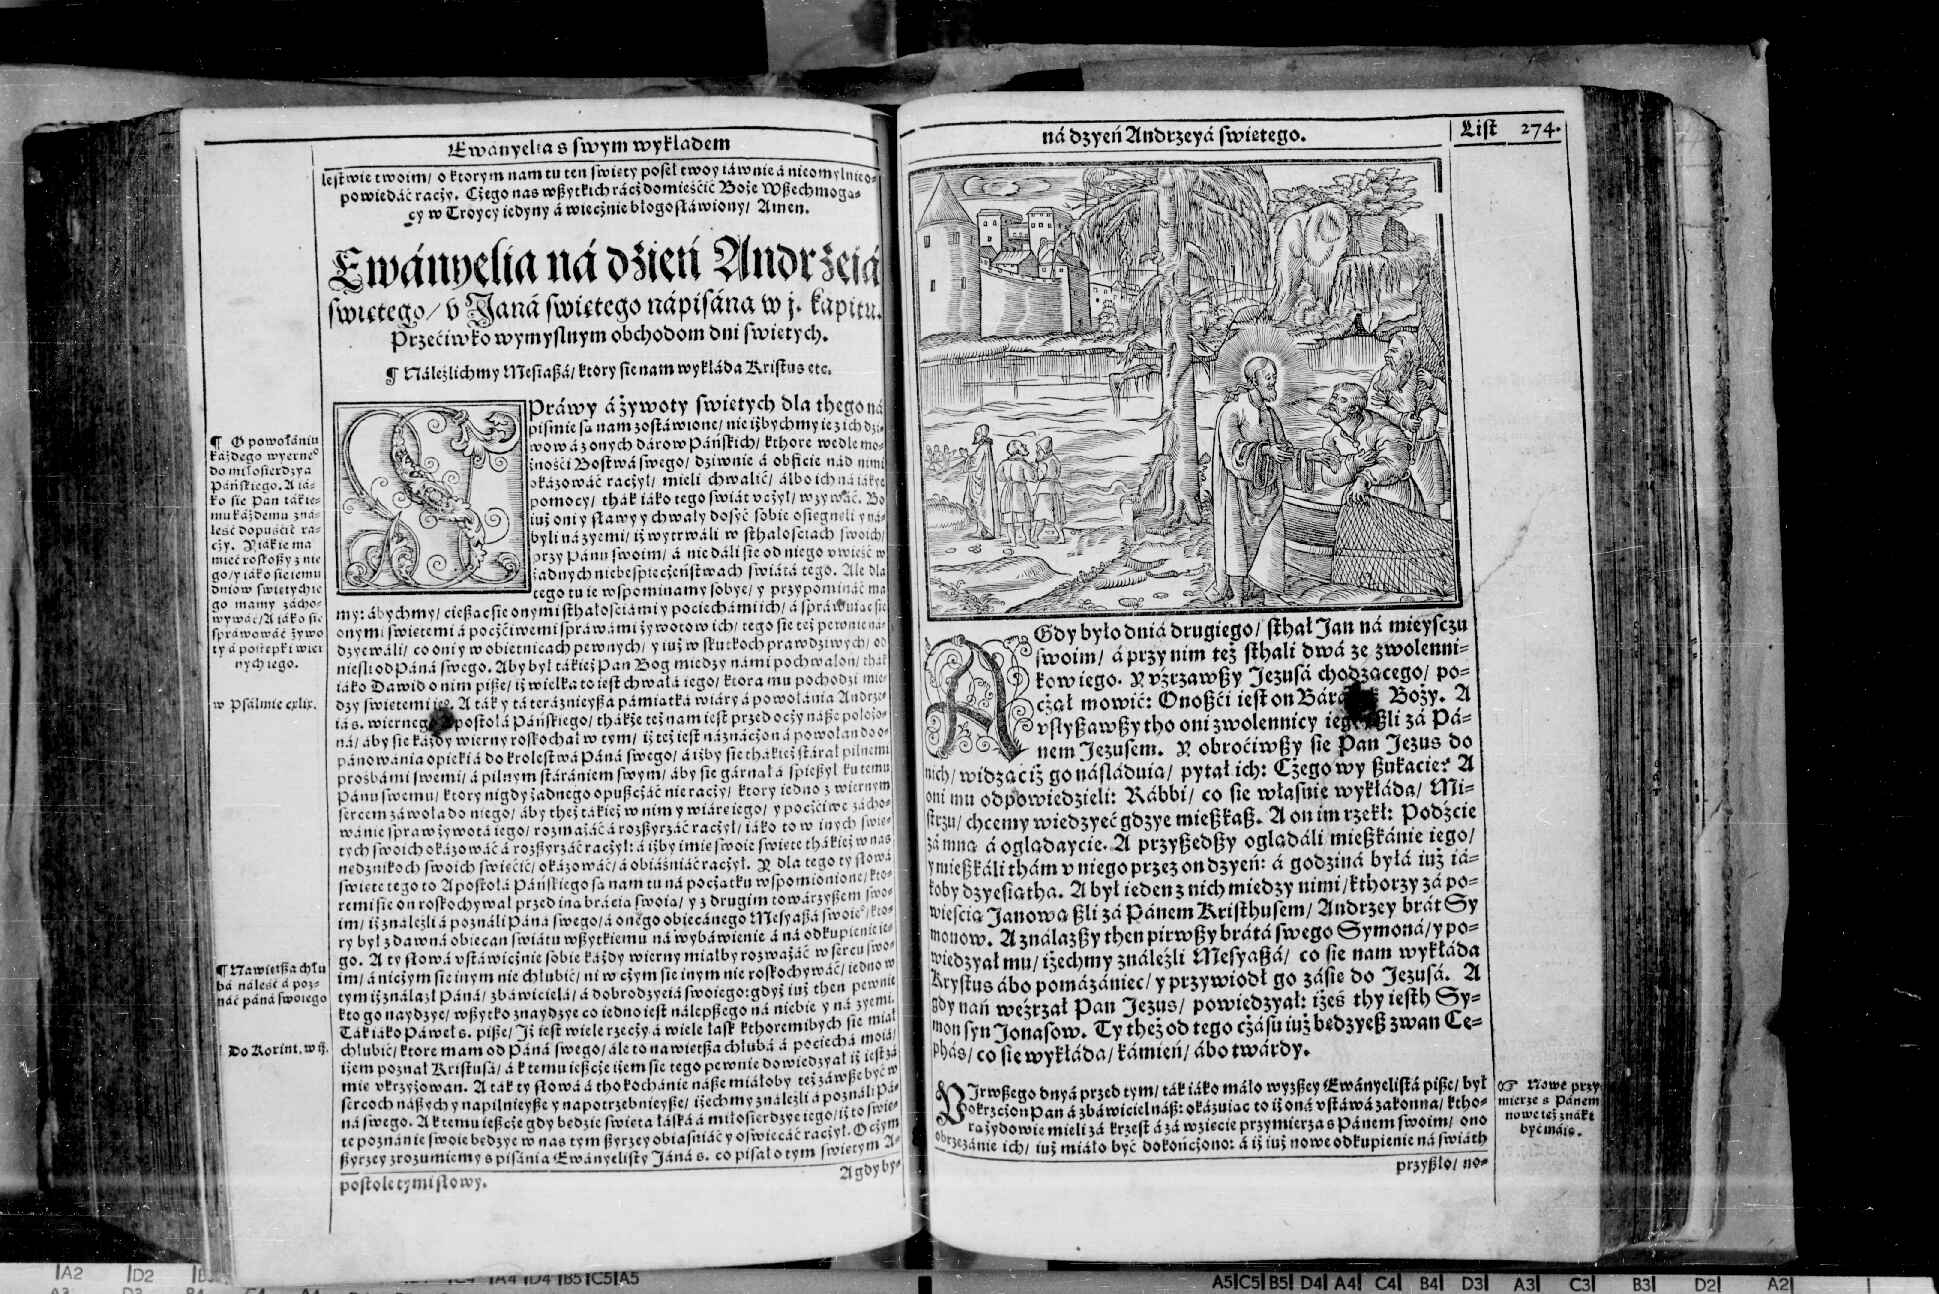 Ewányelia s swym wykładem
lestwie twoim/ o ktorym nam tu ten swięty poseł twoy iáwnie á nieomylnieo-
powiedáć raczy. Czego nas wßytkich rácz domieśćić Boże Wßechmogą-
cy w Troycy iedyny á wiecznie błogosłáwiony/ Amen.
Ewányelia ná dzień Andrzeiá
swiętego/ v Janá swiętego nápisána w j. kápitu.
Przećiwko wymyslnym obchodom dni swiętych.
¶ Náleźlichmy Mesiaßá/ ktory sie nam wykłáda Kristus etc.
SPráwy á żywoty swiętych dla thego ná
pismie są nam zostáwione/ nie iżbychmy ie z ich dzi-
wow á z onych dárow Páńskich/ kthore wedle mo-
żnośći Bostwá swego/ dziwnie á obficie nád nimi
okázowáć raczył/ mieli chwalić/ álbo ich ná iákye
pomocy/ thák iáko tego swiát vczył/ wzywáć. Bo
iuż oni y sławy y chwały dosyć sobie osięgneli y ná-
byli ná zyemi/ iż wytrwáli w stháłosciach swoich/
przy Pánu swoim/ á nie dáli sie od niego vwieść w
żadnych niebespieczeństwach swiátá tego. Ale dla
tego tu ie wspominamy sobye/ y przypomináć ma
my: ábychmy/ cießąc sie onymi stháłośćiámi y pociechámi ich/ á spráwuiąc sie
onymi swiętemi á poczćiwemi spráwámi żywotow ich/ tego sie też pewnie ná-
dzyewáli/ co oni y w obietnicach pewnych/ y iuż w skutkoch prawdziwych/ od
niesli od Páná swego. Aby był tákież Pan Bog miedzy námi pochwalon/ thák
iáko Dawid o nim piße/ iż wielka to iest chwałá iego/ ktora mu pochodzi mie-
dzy swiętemi ie⁰. A ták y tá teráznieyßa pámiątká wiáry á powołánia Andrze-
iá s. wierneg Apostołá Páńskiego/ thákże też nam iest przed oczy náße położo-
ná/ áby sie káżdy wierny roskochał w tym/ iż też iest náznáczon á powołan do o-
pánowánia opieki á do krolestwá Páná swego/ á iżby sie thákież stárał pilnemi
prośbámi swemi/ á pilnym stárániem swym/ áby sie gárnął á spießył ku temu
Pánu swemu/ ktory nigdy żadnego opußczáć nie raczy/ ktory iedno z wiernym
sercem záwoła do niego/ áby theż tákież w nim y wiáre iego/ y poczćiwe zácho-
wánie spraw żywotá iego/ rozmażáć á rozßyrzáć raczył/ iáko to w inych swię-
tych swoich okázowáć á rozßyrzáć raczył: á iżby imię swoie swięte thákież w nas
nędznikoch swoich swiećić/ okázowáć/ á obiáśniáć raczył. Y dla tego ty słowá
swięte tego to Apostołá Páńskiego są nam tu ná początku wspomionione/ kto-
remi sie on roskochywał przed iną brácią swoią/ y z drugim towárzyßem swo-
im/ iż ználeźli á poználi Páná swego/ á onego obiecánego Mesyaßá swoie⁰/ kto-
ry był z dawná obiecan swiátu wßytkiemu ná wybáwienie á ná odkupienie ie-
go. A ty słowá vstáwicznie sobie káżdy wierny miałby rozważáć w sercu swo-
im/ á niczym sie inym nie chłubić/ ni w czym sie inym nie roskochywáć/ iedno w
tym iż ználazł Páná/ zbáwicielá/ á dobrodzyeiá swoiego: gdyż iuż then pewnie
kto go naydzye/ wßytko znaydzye co iedno iest nálepßego ná niebie y ná zyemi.
Ták iáko Páweł s. piße/ Iż iest wiele rzeczy á wiele łask kthoremibych sie miał
chłubić/ ktore mam od Páná swego/ ále to nawiętßa chłubá á pociechá moiá/
iżem poznał Kristusá/ á k temu ießcze iżem sie tego pewnie dowiedzyał iż iest zá
mie vkrzyżowan. A ták ty słowá á tho kochánie náße miáłoby też záwße być w
sercoch náßych y napilnieyße y napotrzebnieyße/ iżechmy ználeźli á poználi Pá-
ná swego. A k temu ießcze gdy będzie swięta łáská á miłosierdzye iego/ iż to swię-
te poznánie swoie będzye w nas tym ßyrzey obiáśniáć y oświecáć raczył. O czym
ßyrzey zrozumiemy s pisánia Ewányelisty Janá s. co pisał o tym swiętym A-
postole tymi słowy.
A gdy by-
¶ O powołániu
káżdego wyerne⁰
do miłosierdzya
Páńskiego. A iá-
ko sie Pan tákie-
mu káżdemu zná-
leść dopuśćić ra-
czy. Y iákie ma
mieć roskoßy z nie
go/ y iáko sie iemu
dniow swiętych ie
go mamy zácho-
wywáć/ A iáko sie
spráwowáć żywo
ty á postępki wier
nych iego.
w Psalmie cxlix.
¶ Nawiętßa chłu
bá náleść á poz-
náć páná swoiego
Do Korint. w ij.
ná dzyeń Andrzeyá swiętego.
List 274.
A Gdy było dniá drugiego/ sthał Jan ná mieysczu
swoim/ á przy nim też sthali dwá ze zwolenni-
kow iego. Y vźrzawßy Jezusá chodzącego/ po-
czął mowić: Onoßći iest on Bárá Boży. A
vsłyßawßy tho oni zwolennicy ieg ßli zá Pá-
nem Jezusem. Y obroćiwßy sie Pan Jezus do
nich/ widząc iż go násláduią/ pytał ich: Czego wy ßukacie? A
oni mu odpowiedzieli: Rábbi/ co sie własnie wykłáda/ Mi-
strzu/ chcemy wiedzyeć gdzye mießkaß. A on im rzekł: Podźcie
zá mną á oglądaycie. A przyßedßy oglądáli mießkánie iego/
y mießkáli thám v niego przez on dzyeń: á godziná byłá iuż iá-
koby dzyesiątha. A był ieden z nich miedzy nimi/ kthorzy zá po-
wieścią Janową ßli zá Pánem Kristhusem/ Andrzey brát Sy
monow. A ználazßy then pirwßy brátá swego Symoná/ y po-
wiedzyał mu/ iżechmy ználeźli Mesyaßá/ co sie nam wykłáda
Krystus ábo pomázániec/ y przywiodł go zásie do Jezusá. A
gdy nań weźrzał Pan Jezus/ powiedzyał: iżeś thy iesth Sy-
mon syn Jonasow. Ty theż od tego czásu iuż będzyeß zwan Ce-
phás/ co sie wykłáda/ kámień/ ábo twárdy.
PIrwßego dnyá przed tym/ ták iáko máło wyzßey Ewányelistá piße/ był
pokrzczon Pan á zbáwiciel náß: okázuiąc to iż oná vstáwá zakonna/ ktho-
rą żydowie mieli zá krzest á zá wzięcie przymierza s Pánem swoim/ ono
obrzezánie ich/ iuż miáło być dokończono: á iż iuż nowe odkupienie ná swiáth
przyßło/ no-
☞ Nowe przy
mierze s Pánem
nowe też znáki
być máią.
A2 D2 C4 A4 D4 B5 C5 A5
A5 C5 B5 D4 A4 C4 B4 D3 A3 C3 B3 D2 A2